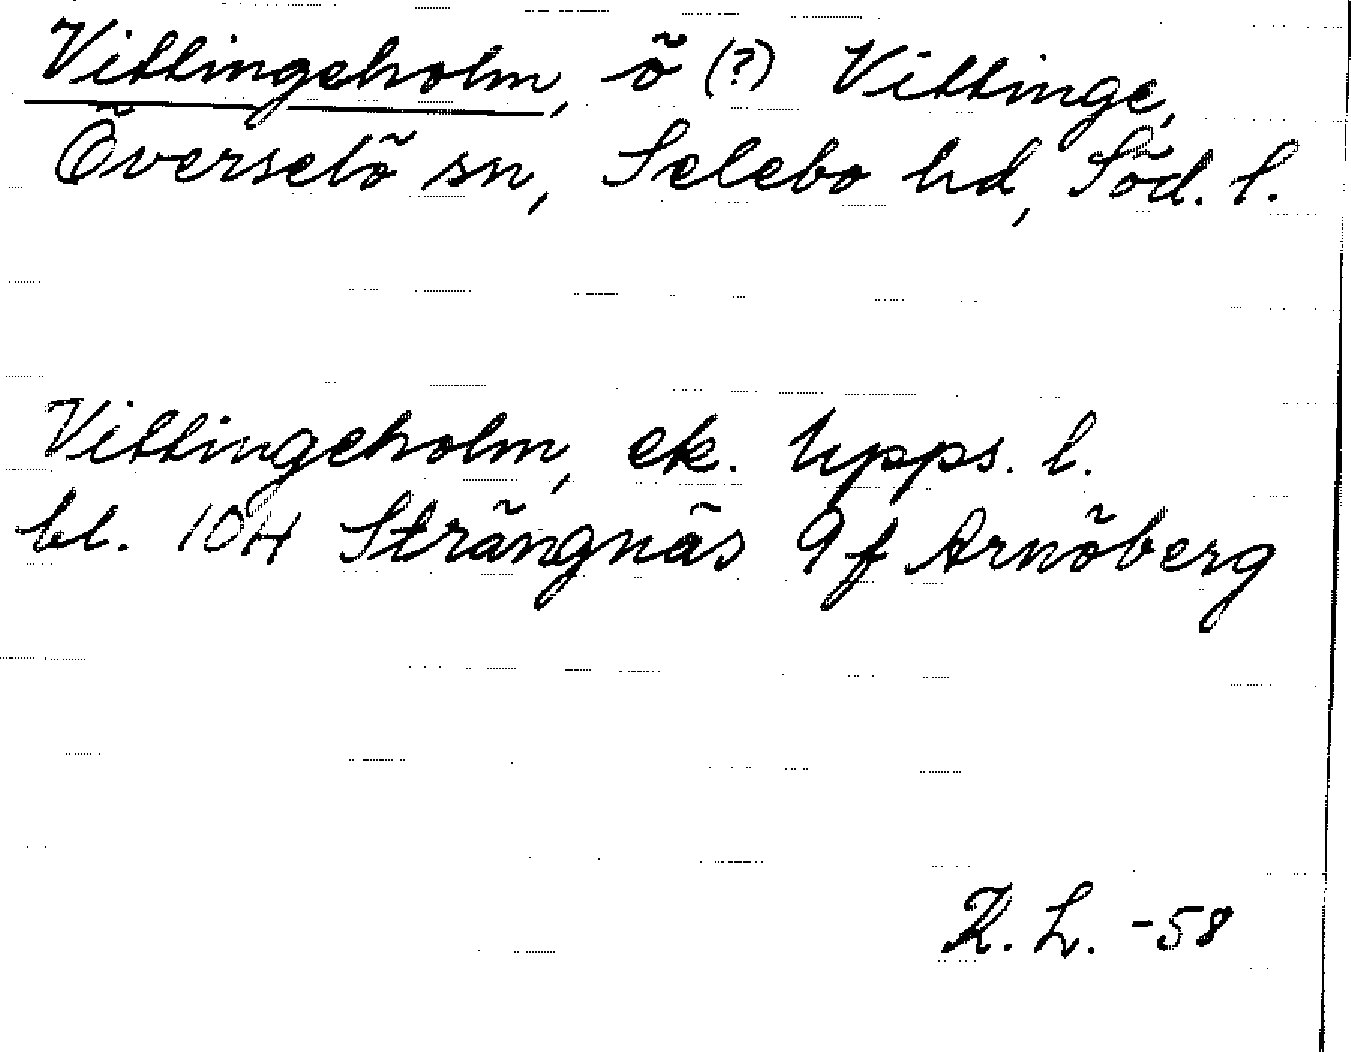 Vittingeholm, ö (?) Vittinge,
Överselö sn, Selebo hd, Söd. l.
Vittingeholm, ek. Upps. l.
bl. 104 Strängnäs 9f Arnöberg
K. L. -58